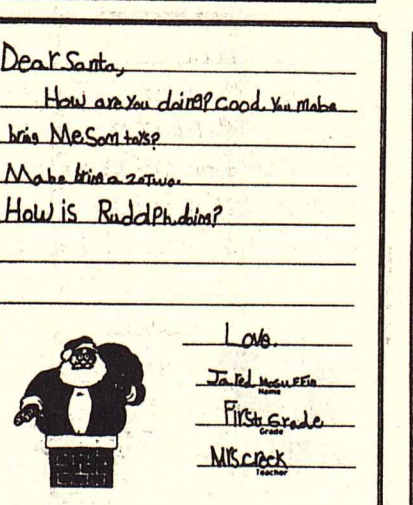 Dear Santa,
How are You doing? Good. You mabe
bring Me Som toys?
Mabe bring a 2 or Two.
How is Ruddph doing?
Love.
Jared McGuffin
Name
First Grade
Grade
Mrs. Creek
Teacher